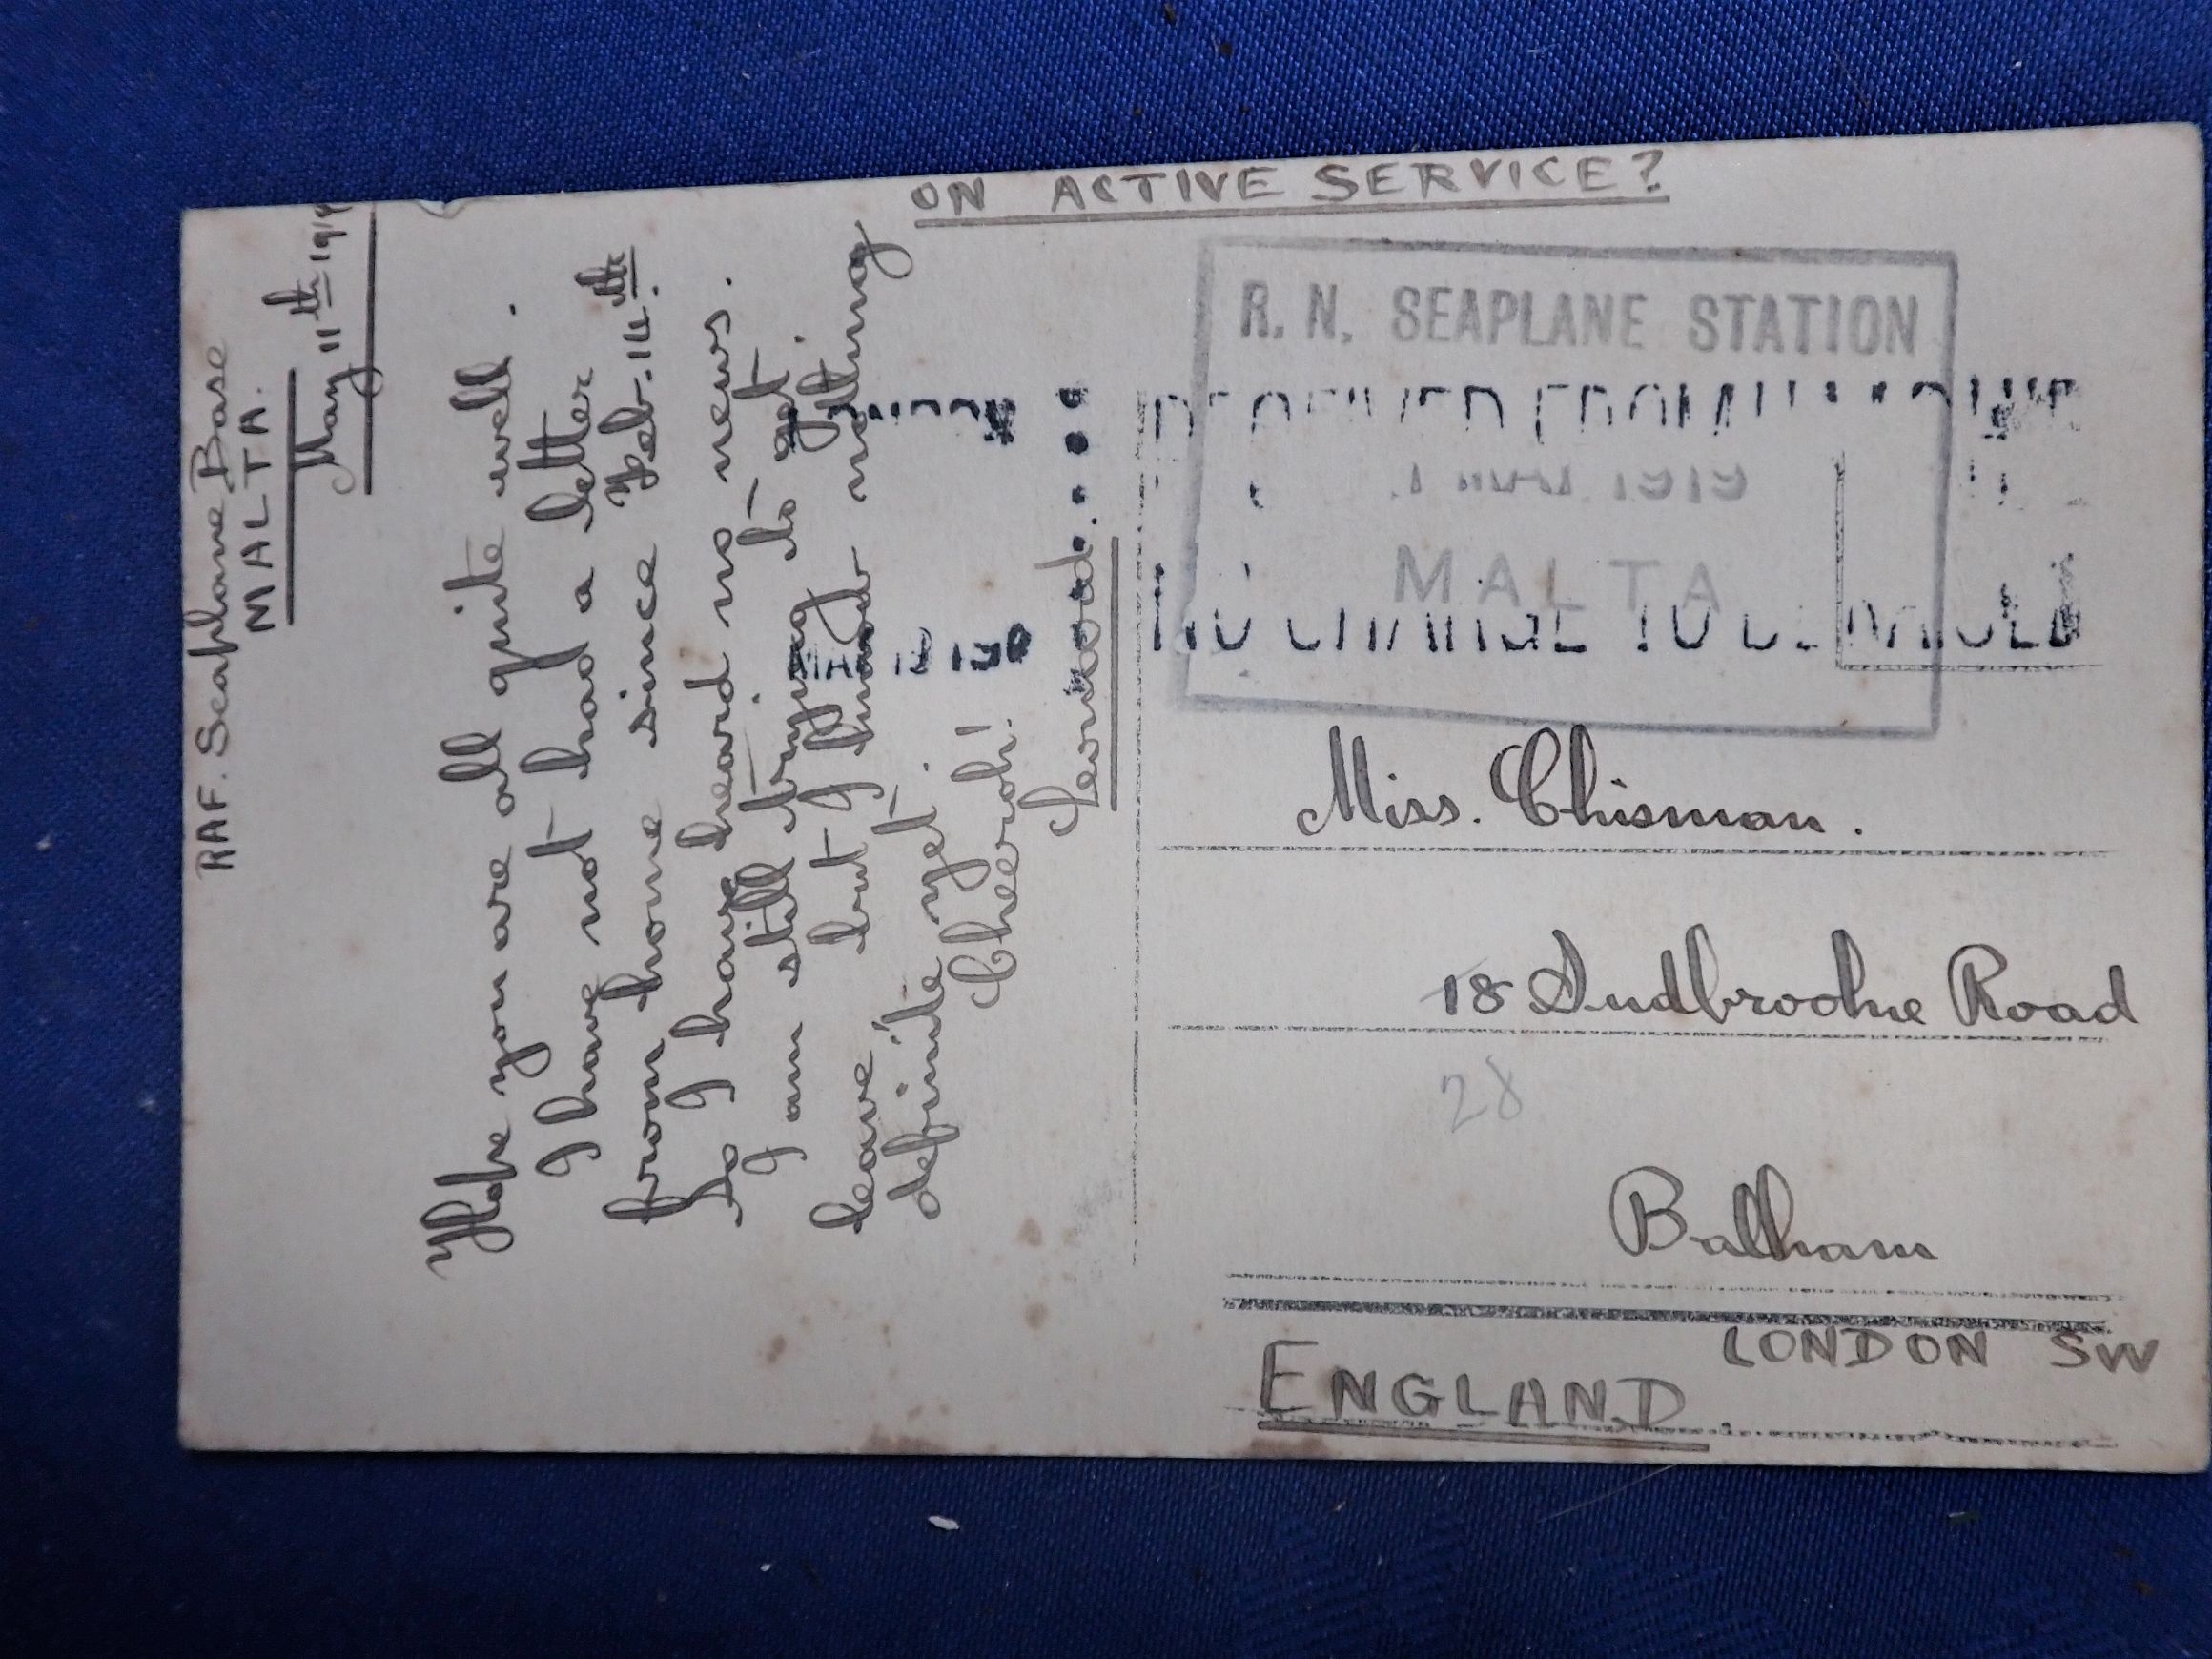 RAF. Seaplane Base
MALTA.
May 11th
Hope you are all quite well.
I have not had a letter
from home since Feb. 14th.
So I have heard no news.
I am still trying to get
leave, but I know nothing
definite yet.
Cheerioh!
Leonard.
ON ACTIVE SERVICE?
R. N. SEAPLANE STATION
1919
MALTA
RECEIVED FROM
NO CHARGE TO BE RAISED
Miss. Chisman.
18 Dudbrooke Road
28
Balham
LONDON SW
ENGLAND.